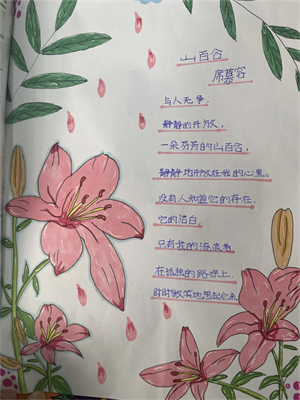 山百合
席慕容
与人无争，
静静的开放，
一朵芬芳的山百合，
静静地开放在我的心里。
没有人知道它的存在，
它的洁白，
只有我的流浪者
在孤独的路途上，
时时微笑地想起它来